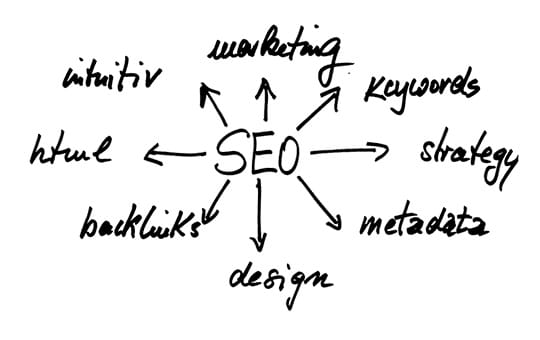 marketing
intuitiv
Keywords
html
SEO
strategy
backlinks
metadata
design